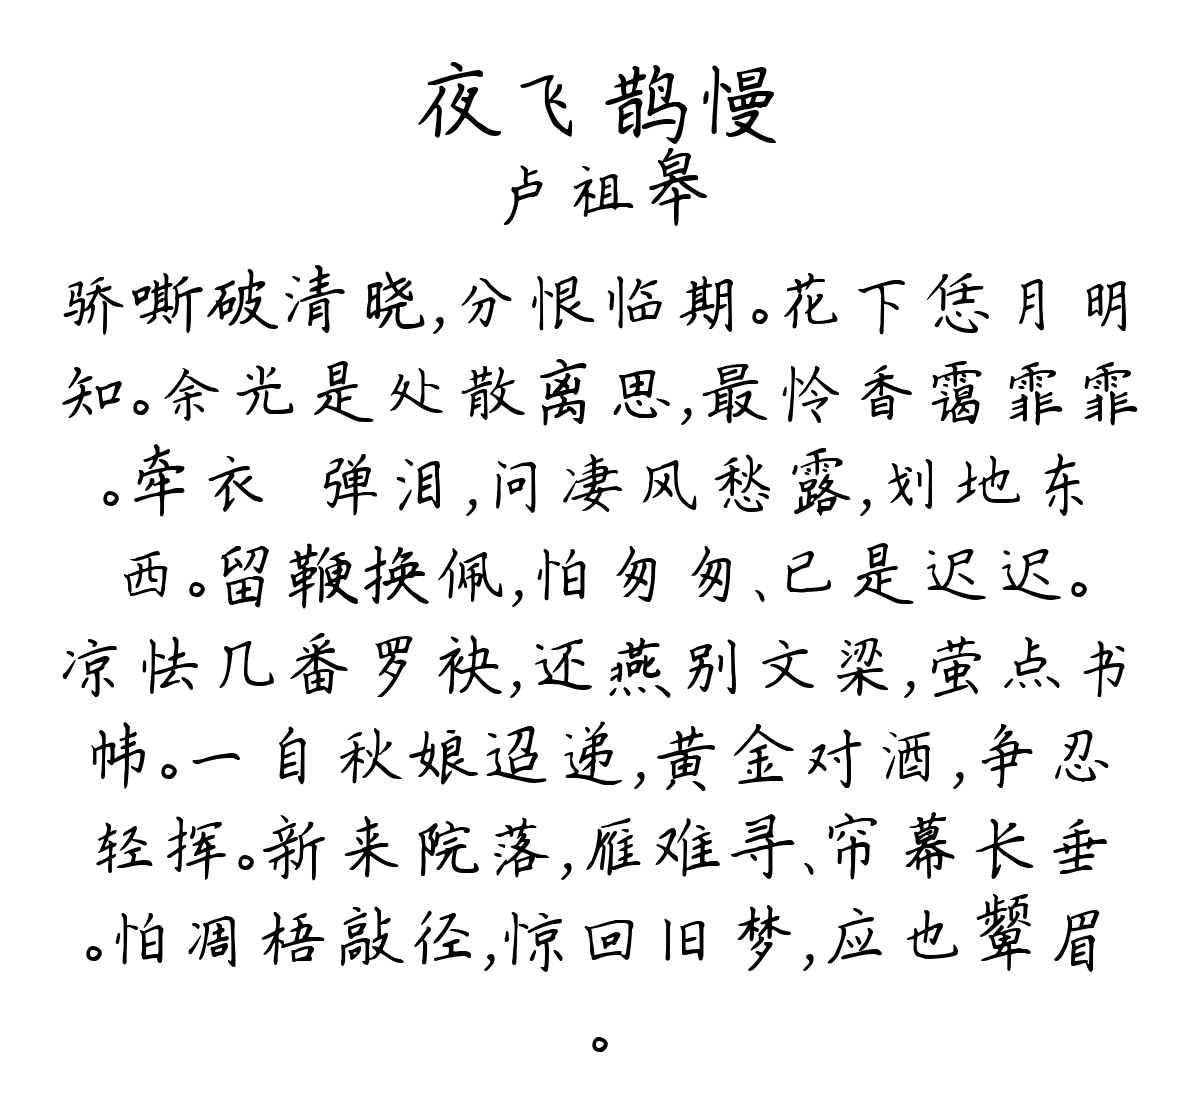 夜飞鹊慢
卢祖皋
骄嘶破清晓,分恨临期。花下恁月明
知。余光是处散离思,最怜香霭霏霏
。牵衣 弹泪,问凄风愁露,划地东
西。留鞭换佩,怕匆匆、已是迟迟。
凉怯几番罗袂,还燕别文梁,萤点书
帏。一自秋娘迢递,黄金对酒,争忍
轻挥。新来院落,雁难寻、帘幕长垂
。怕凋梧敲径,惊回旧梦,应也颦眉
。